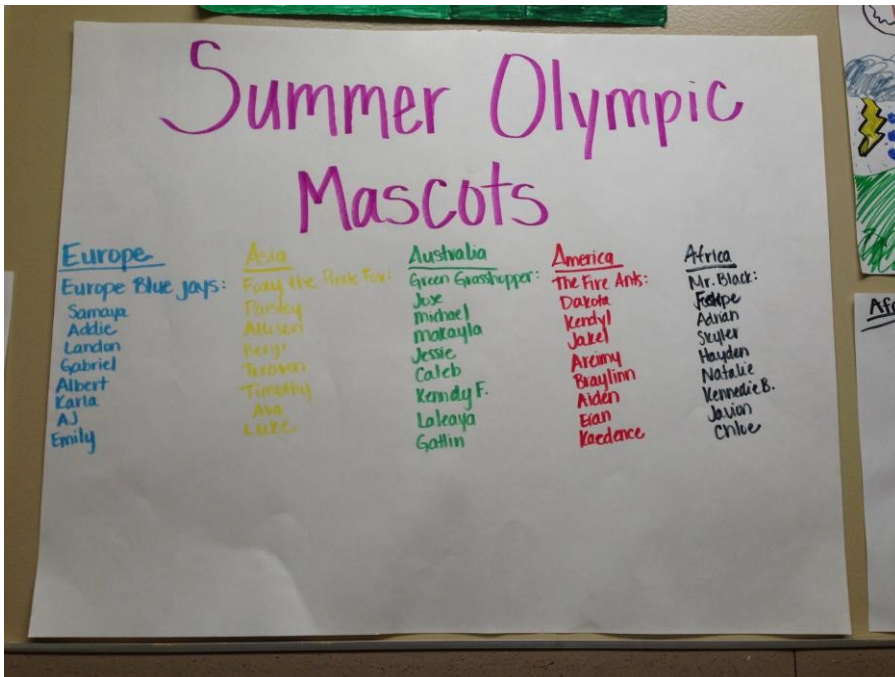 Summer Olympic
Mascots
Europe
Europe Blue jays:
Samaya
Addie
Landon
Gabriel
Albert
Karla
AJ
Emily
Asia
Foxy the Pink Fox:
Paisley
Allison
Timothy
Ava
Luke
Australia
Green Grasshopper:
Jose
michael
makayla
Jessie
Caleb
Kenndy F.
Laleaya
Gatlin
America
The Fire Ants:
Dakota
Kendyl
Jakel
Areimy
Braylinn
Aiden
Eian
Kaedence
Africa
Mr. Black:
Adrian
Skyler
Hayden
Natalie
Kennedie B.
Javion
Chloe
Afr